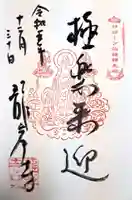 極楽来迎
令和五年
十二月
三十日
龍岸寺